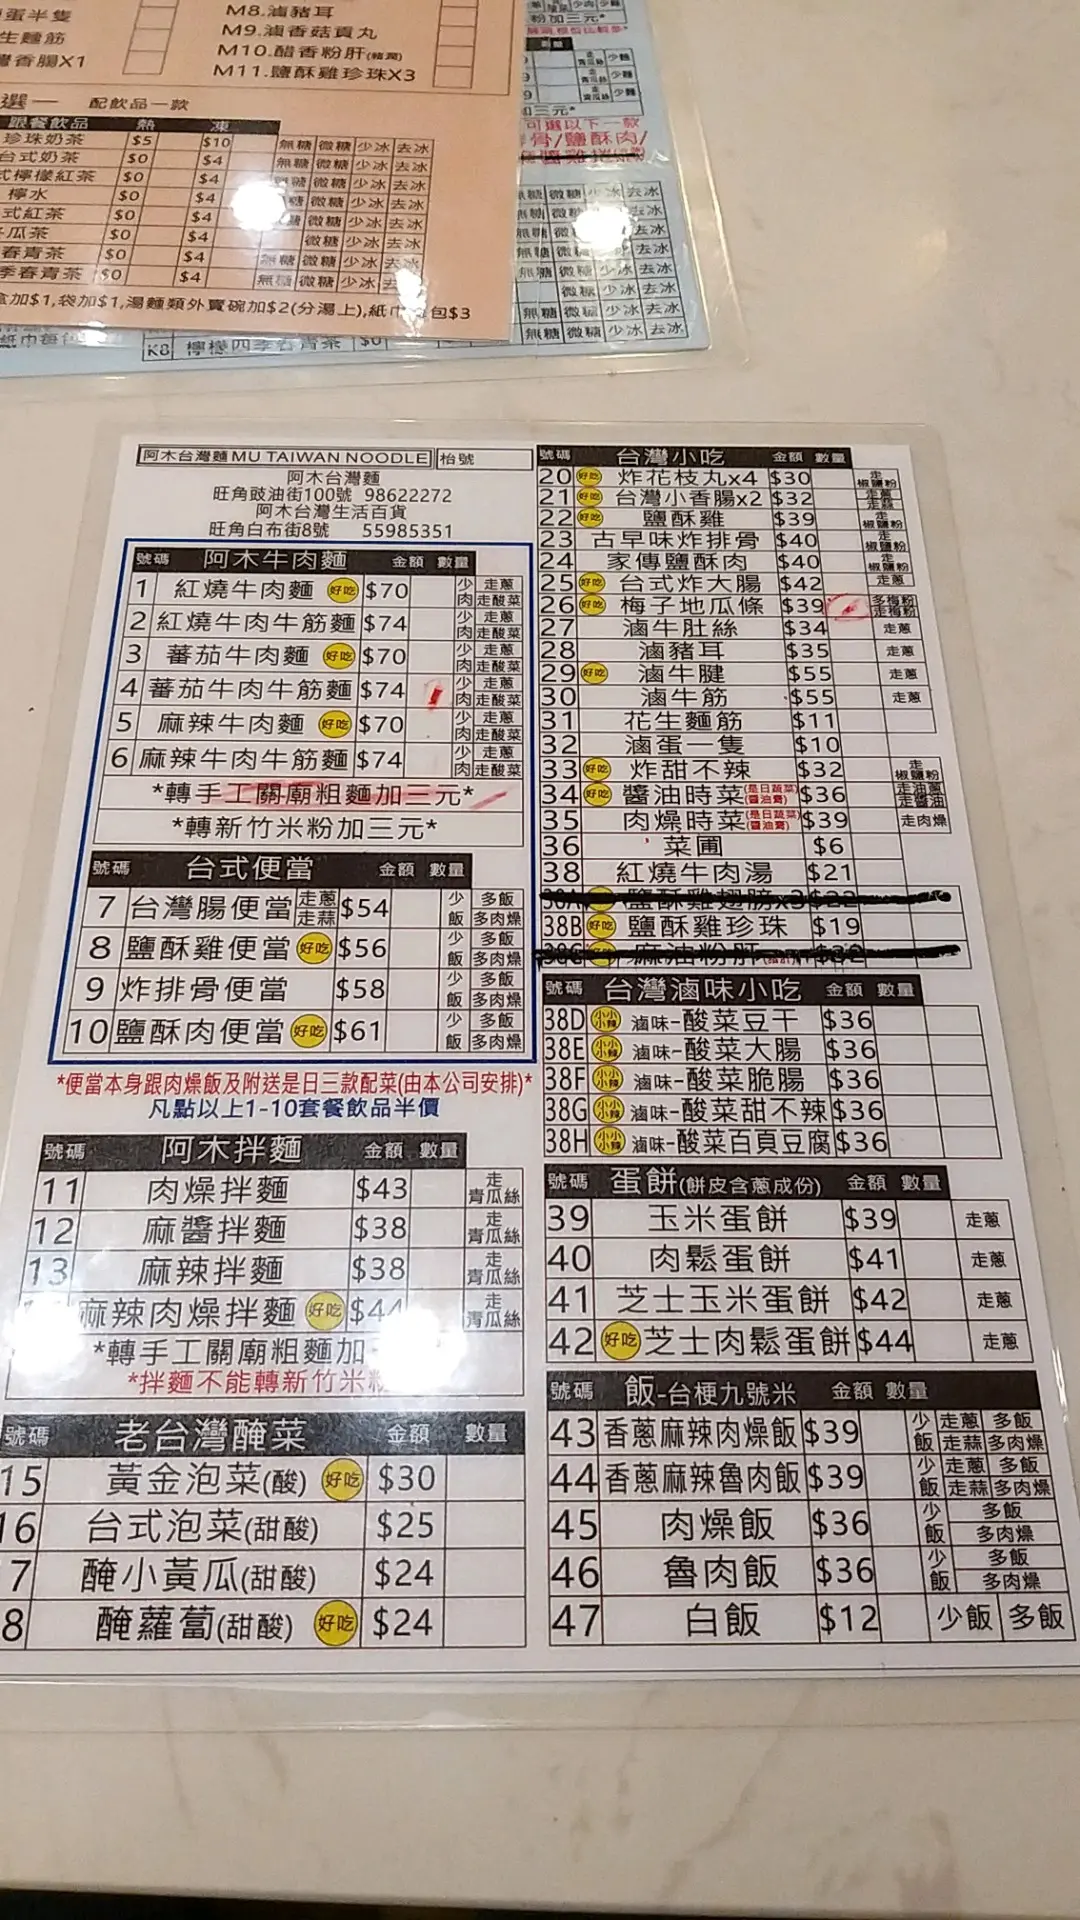 蛋半隻
生麵筋
香腸X1
M8.滷豬耳
M9.滷香菇貢丸
M10.醋香粉肝(豬潤)
M11.鹽酥雞珍珠X3
選一 配飲品一款
跟餐飲品 熱 凍
珍珠奶茶 $5 $10 無糖 微糖 少冰 去冰
台式奶茶 $0 $4 無糖 微糖 少冰 去冰
式檸檬紅茶 $0 $4 無糖 微糖 少冰 去冰
檸水 $0 $4 糖 微糖 少冰 去冰
式紅茶 $0 $4 糖 微糖 少冰 去冰
瓜茶 $0 $4 微糖 少冰 去冰
春青茶 $0 $4 無糖 微糖 少冰 去冰
季春青茶 $0 $4 無糖 微糖 少冰 去冰
盒加$1,袋加$1,湯麵類外賣碗加$2(分湯上),紙巾 包$3
粉加三元*
走青瓜絲 少麵
走青瓜絲 少麵
走青瓜絲 少麵
加三元*
可選以下一款
骨/鹽酥肉/
無糖 微糖 少冰 去冰
紙巾每包
K8 檸檬四季春青茶 $0 無糖 微糖 少冰 去冰
阿木台灣麵MU TAIWAN NOODLE 枱號
阿木台灣麵
旺角豉油街100號 98622272
阿木台灣生活百貨
旺角白布街8號 55985351
號碼 阿木牛肉麵 金額 數量
1 紅燒牛肉麵 好吃 $70 少肉 走蔥 走酸菜
2 紅燒牛肉牛筋麵 $74 少肉 走蔥 走酸菜
3 蕃茄牛肉麵 好吃 $70 少肉 走蔥 走酸菜
4 蕃茄牛肉牛筋麵 $74 少肉 走蔥 走酸菜
5 麻辣牛肉麵 好吃 $70 少肉 走蔥 走酸菜
6 麻辣牛肉牛筋麵 $74 少肉 走蔥 走酸菜
*轉手工關廟粗麵加三元*
*轉新竹米粉加三元*
號碼 台式便當 金額 數量
7 台灣腸便當 走蔥 走蒜 $54 少飯 多飯 多肉燥
8 鹽酥雞便當 好吃 $56 少飯 多飯 多肉燥
9 炸排骨便當 $58 少飯 多飯 多肉燥
10 鹽酥肉便當 好吃 $61 少飯 多飯 多肉燥
*便當本身跟肉燥飯及附送是日三款配菜(由本公司安排)*
凡點以上1-10套餐飲品半價
號碼 阿木拌麵 金額 數量
11 肉燥拌麵 $43 走青瓜絲
12 麻醬拌麵 $38 走青瓜絲
13 麻辣拌麵 $38 走青瓜絲
麻辣肉燥拌麵 好吃 $44 走青瓜絲
*轉手工關廟粗麵加
*拌麵不能轉新竹米粉
號碼 老台灣醃菜 金額 數量
15 黃金泡菜(酸) 好吃 $30
16 台式泡菜(甜酸) $25
7 醃小黃瓜(甜酸) $24
8 醃蘿蔔(甜酸) 好吃 $24
號碼 台灣小吃 金額 數量
20 好吃 炸花枝丸x4 $30 走椒鹽粉
21 好吃 台灣小香腸x2 $32 走蔥 走蒜
22 好吃 鹽酥雞 $39 走椒鹽粉
23 古早味炸排骨 $40 走椒鹽粉
24 家傳鹽酥肉 $40 走椒鹽粉
25 好吃 台式炸大腸 $42 走蔥
26 好吃 梅子地瓜條 $39 多梅粉 走梅粉
27 滷牛肚絲 $34 走蔥
28 滷豬耳 $35 走蔥
29 好吃 滷牛腱 $55 走蔥
30 滷牛筋 $55 走蔥
31 花生麵筋 $11
32 滷蛋一隻 $10
33 好吃 炸甜不辣 $32 走椒鹽粉
34 好吃 醬油時菜(是日蔬菜 醬油膏) $36 走油蔥 走醬油
35 肉燥時菜(是日蔬菜 醬油膏) $39 走肉燥
36 菜圃 $6
38 紅燒牛肉湯 $21
38A 鹽酥雞翅膀x3 $22
38B 好吃 鹽酥雞珍珠 $19
38C 麻油粉肝 $32
號碼 台灣滷味小吃 金額 數量
38D 小小小辣 滷味-酸菜豆干 $36
38E 小小小辣 滷味-酸菜大腸 $36
38F 小小小辣 滷味-酸菜脆腸 $36
38G 小小小辣 滷味-酸菜甜不辣 $36
38H 小小小辣 滷味-酸菜百頁豆腐 $36
號碼 蛋餅(餅皮含蔥成份) 金額 數量
39 玉米蛋餅 $39 走蔥
40 肉鬆蛋餅 $41 走蔥
41 芝士玉米蛋餅 $42 走蔥
42 好吃 芝士肉鬆蛋餅 $44 走蔥
號碼 飯-台梗九號米 金額 數量
43 香蔥麻辣肉燥飯 $39 少飯 走蔥 多飯 走蒜 多肉燥
44 香蔥麻辣魯肉飯 $39 少飯 走蔥 多飯 走蒜 多肉燥
45 肉燥飯 $36 少飯 多飯 多肉燥
46 魯肉飯 $36 少飯 多飯 多肉燥
47 白飯 $12 少飯 多飯